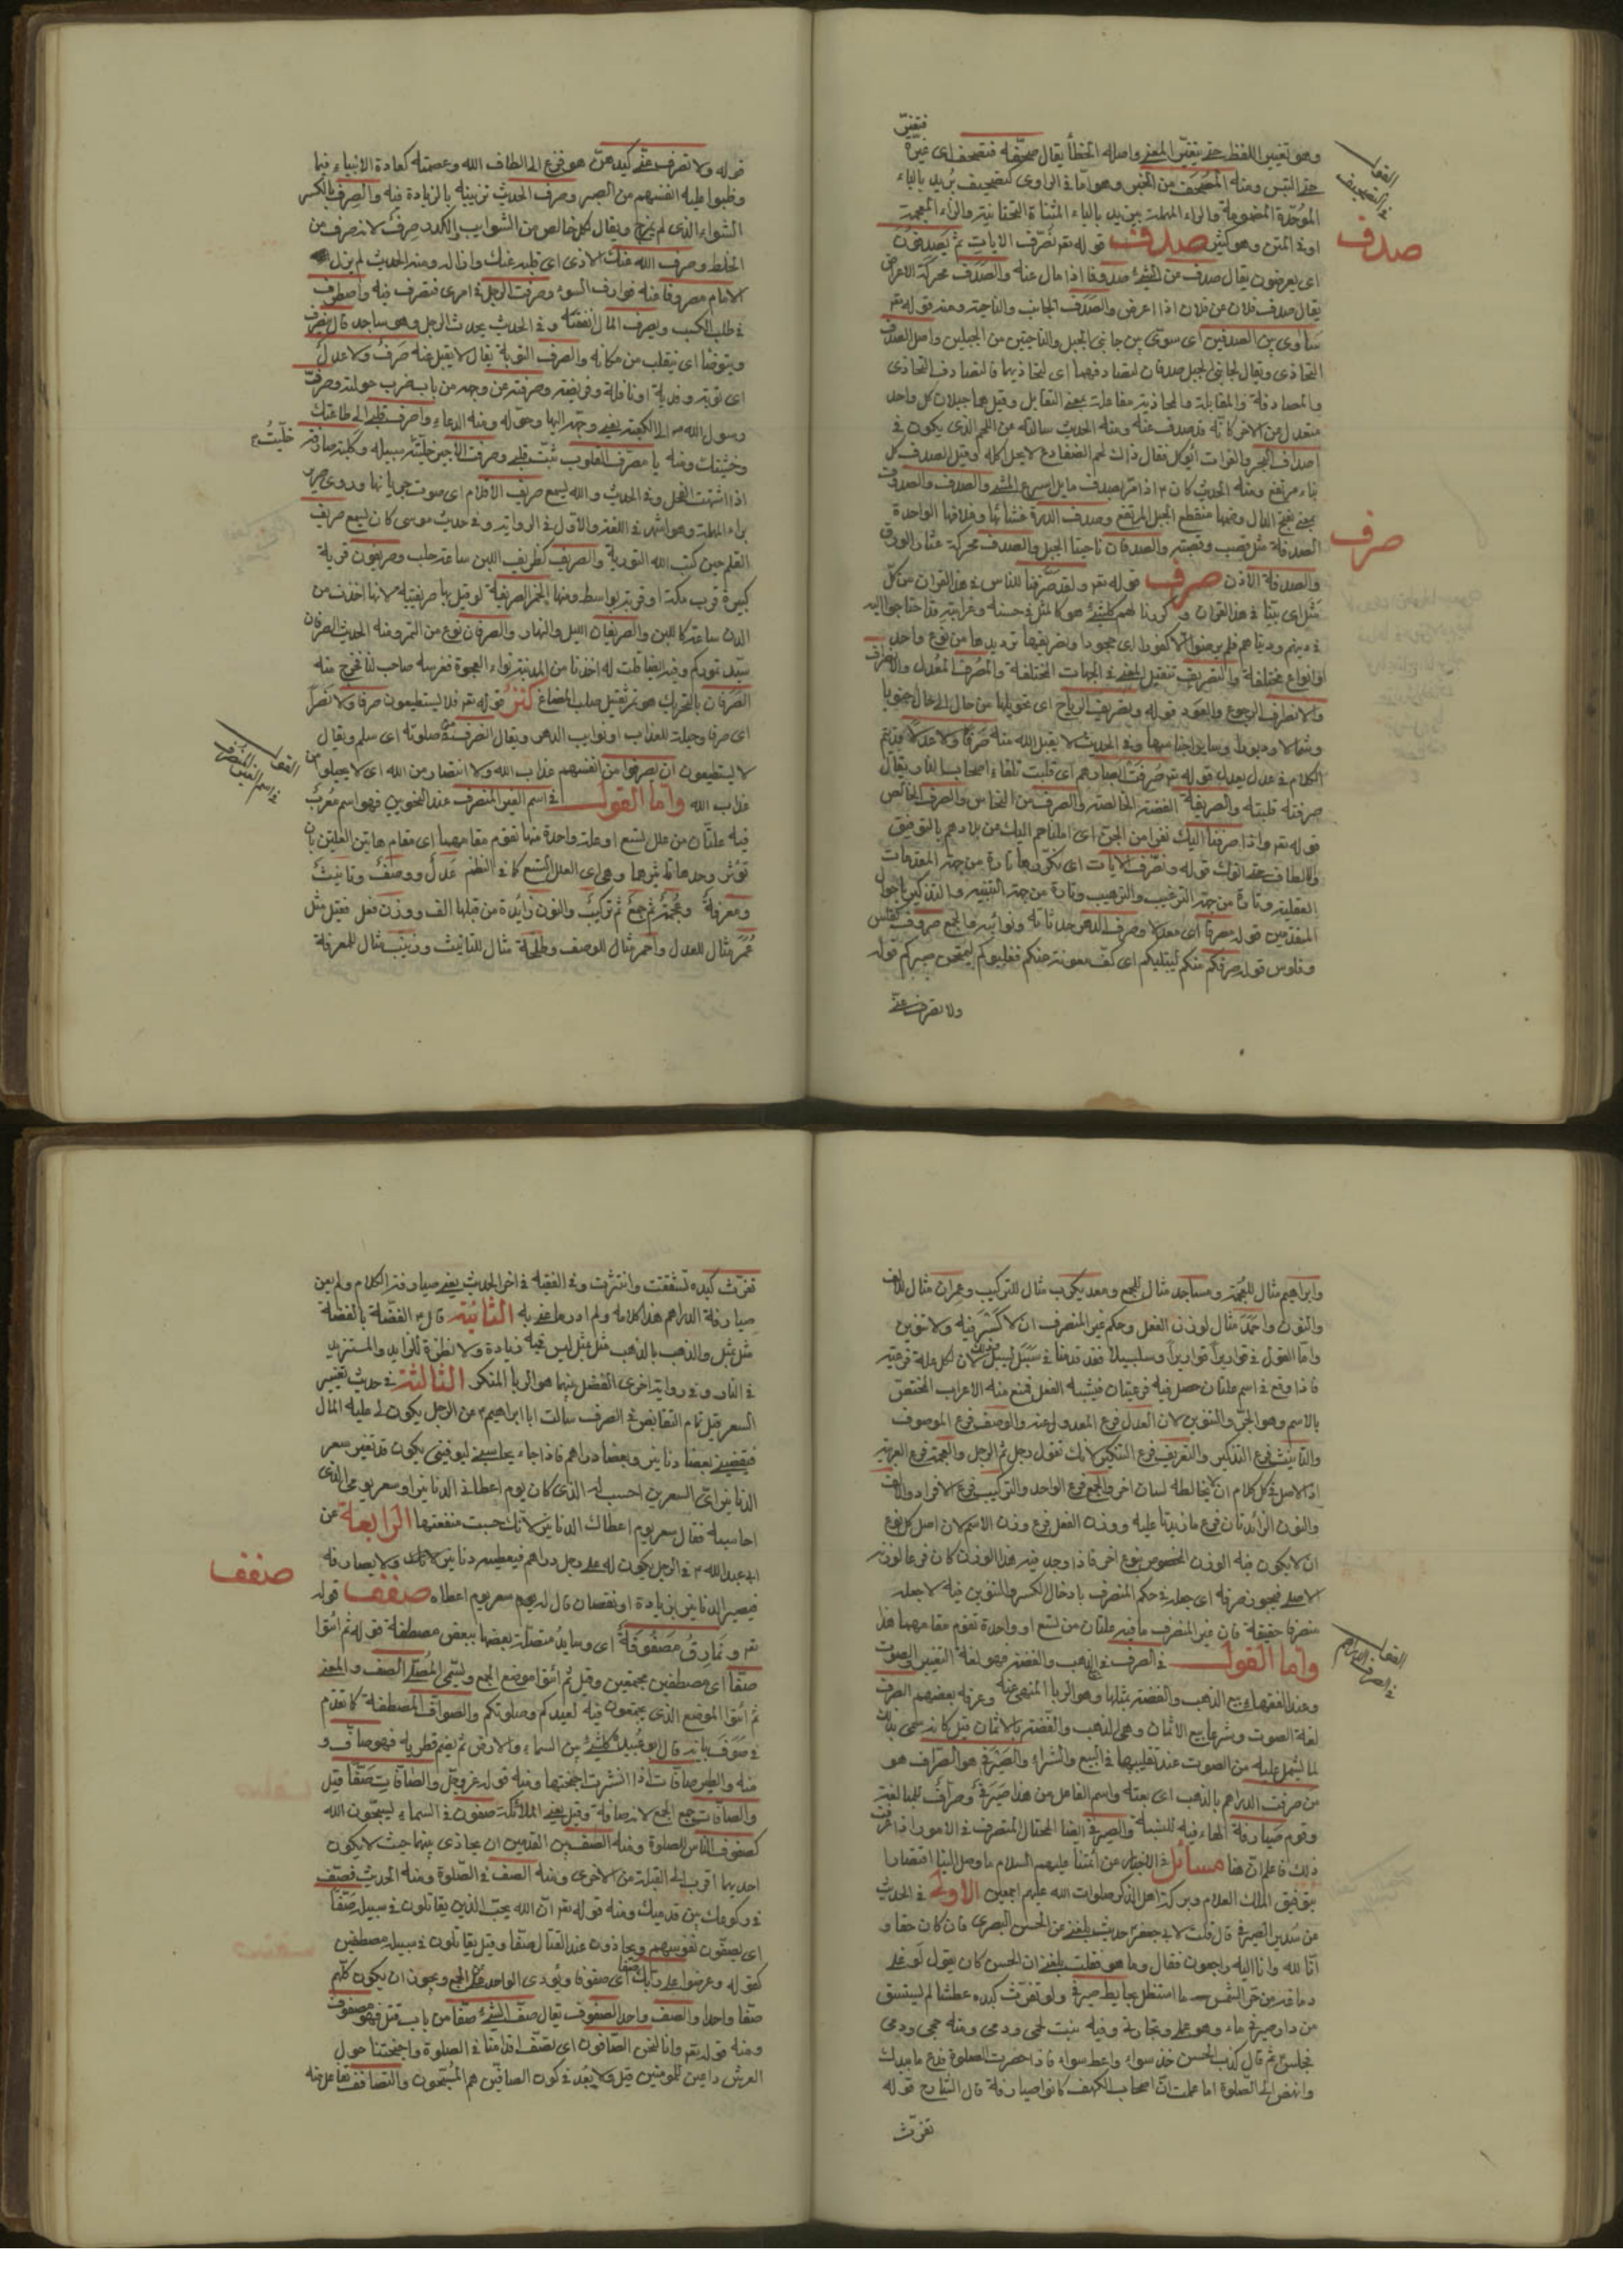 وهو تغيير اللفظ حتى يتغير المعنى واصله الخطأ يقال صحّفه فتصحف اى غيّره
فتغيّر
حتى التبس ومنه المصحف من الخبر وهو اما فى الراوى كتصحيف بريد بالباء
القول
فى التصحيف
الموحّدة المضمومة والراء المهملة بيزيد بالياء المثناة التحتانية والزاء المعجمة
صدف
او فى المتن وهو كثير صدف قوله تعر نصرّف الايات ثم يصدفون
اى يعرضون يقال صدف عن الشئ صدوفا اذا مال عنه والصدف محركة الاعراض
يقال صدف فلان عن فلان اذا اعرض والصدف الجانب والناحية ومنه قوله تعر
ساوى بين الصدفين اى سوّى بين جانبى الجبل والناحيتين من الجبلين واصل الصدف
التحاذى ويقال لجانبى الجبل صدفان لتصادفهما اى لتحاذيهما فالتصادف التحاذى
والمصادفة والمقابلة والمحاذية مفاعلة بمعنى التقابل وقيل هما جبلان كل واحد
منعدل عن الاخر كانه قد صدف عنه ومنه الحديث سالته عن اللحم الذى يكون فى
اصداف البحر والفرات ايوكل فقال ذاك لحم الضفادع لا يحل اكله وقيل الصدف كل
بناء مرتفع ومنه الحديث كان ص اذا مر بصدف مايل اسرع المشى والصدف والصدوف
بمعنى بفتح الدال وضمها منقطع الجبل المرتفع وصدف الدرة غشائها وغلافها الواحدة
صرف
الصدفة مثل قصب وقصبة والصدفان ناحيتا الجبل والصدف محركة عشاء الورق
والصدفة الاذن صرف قوله تعر ولقد صرّفنا للناس فى هذا القران من كلّ
مثل اى بيّنا فى هذا القران وكررنا لهم كلّ شئ هو كالمثل فى حسنه وغرابته وقد احتاجوا اليه
فى دينهم ودنياهم فلم يرضوا الا كفورا اى جحودا وتصريفها ترديدها من نوع واحد
لانواع مختلفة والتصريف تنقيل المعنى فى الجهات المختلفة والمصرف المعدل والتصرف
والانصراف الرجوع والعود قوله وتصريف الرياح اى تحويلها من حال الى حال جنوبا
وشمالا ودبورا وصبا وساير اجناسها وفى الحديث لا يقبل الله منه صرفا ولا عدلا وقد تم
الكلام فى عدل يعدل قوله تعر صُرفت ابصارهم اى قلبت تلقاء اصحاب النار يقال
صرفته قلبته والصريفة الفضة الخالصة والصرف من النحاس والصرف الخالص
قوله تعر واذ صرفنا اليك نفرا من الجن اى املناهم اليك عن بلادهم بالتوفيق
والالطاف حتى اتوك قوله ونصرّف الايات اى نكررها تارة من جهة المقدمات
العقلية وتارة من جهة الترغيب والترهيب وتارة من جهة التنبيه والتذكير باحوال
المتقدمين قوله مصرفا اى معدلا وصرف الدهر حدثانه ونوائبه والجمع صروف كفلس
وفلوس قوله صرفكم عنهم ليبتليكم اى كف معونته عنكم فغلبوكم ليمتحن صبركم قوله
ولا تصرف عنى
قوله ولا تصرف عنى كيدهن هو فزع الى الطاف الله وعصمته كعادة الانبياء فيما
وطّنوا عليه انفسهم من الصبر وصرف الحديث تزيينه بالزيادة فيه والصرف بالكسر
الشراب الذى لم يمزج ويقال لكل خالص من الشوايب والكدر صرف لانه صرف عن
الخلط وصرف الله عنك الاذى اى قلبه عنك وازاله ومنه الحديث لم يزل
الامام مصروفا عنه قوارف السوء وصرفت الرجل فى امرى فتصرف فيه واصطرف
فى طلب الكسب وصرف المال انفقه وفى الحديث يحدث الرجل وهو ساجد قال ينصرف
ويتوضأ اى ينقلب من مكانه والصرف التوبة يقال لا يقبل منه صرف ولا عدل
اى توبة وفدية او نافلة وفريضة وصرفته عن وجهه من باب ضرب حولته وصرفت
رسول الله ص الى الكعبة يعنى وجّه اليها وحوّله ومنه الدعاء واصرف قلبى الى طاعتك
خلّيت
وخشيتك ومنه يا مصرف القلوب ثبت قلبى وصرفت الاجير خليت سبيله وكلبة صارفة
اذا اشتهت الفحل وفى الحديث والله يسمع صريف الاقلام اى صوت جريانها وروى صرير
براء المهملة وهو اشهر فى اللغة والاول فى الرواية وفى حديث موسى كان يسمع صريف
القلم حين كتب الله التورية والصريف كظريف اللبن ساعة حلب وصريفون قرية
كبيرة قرب عكبرا وقرية بواسط ومنها الخمر الصريفية او قيل لها صريفية لانها اخذت من
الدن ساعتئذ كاللبن والصريفان الليل والنهار والصرفان نوع من التمر ومنه الحديث الصرفان
سيد تموركم وفيه ايضا قلت له اخذنا من المدينة نواة العجوة فغرسه صاحب لنا فخرج منه
الصرفان بالتحريك هو تمر ثقيل صلب المضاغ كنز قوله تعر فلا يستطيعون صرفا ولا نصرا
اى صرفا وحيلة للعذاب او نوايب الدهر ويقال انصرف من صلوته اى سلم ويقال
لا يستطيعون ان يصرفوا عن انفسهم عذاب الله ولا انتصار من الله اى لا يحيلوا من
القول
فى اسم الغير المنصرف
عذاب الله واما القول فى اسم الغير المنصرف عند النحويين فهو اسم معرب
فيه علتان من علل تسع او علة واحدة منها تقوم مقامهما اى مقام هاتين العلتين بان
تؤثر وحدها تاثيرها وهى اى العلل التسع كما فى النظم عدل ووصف وتانيث
ومعرفة وعجمة ثم جمع ثم تركيب والنون زائدة من قبلها الف ووزن فعل فقيل مثل
عمر مثال للعدل واحمر مثال للوصف وطلحة مثال للتانيث وزينب مثال للمعرفة
وابراهيم مثال للعجمة ومساجد مثال للجمع ومعديكرب مثال للتركيب وعمران مثال للالف
والنون واحمد مثال لوزن الفعل وحكم غير المنصرف ان لا كسر فيه ولا تنوين
واما القول فى قواريرا قواريرا وسلسبيلا فقد قدمنا فى سبيل لان لكل علة فرعية
فاذا وقع فى اسم علتان حصل فيه فرعيتان فيشبه الفعل فمنع منه الاعراب المختص
بالاسم وهو الجر والتنوين لان العدل فرع المعدول عنه والوصف فرع الموصوف
والتانيث فرع التذكير والتعريف فرع التنكير لانك تقول رجل ثم الرجل والعجمة فرع العربية
اذ الاصل فى كل كلام ان لا يخالطه لسان اخر والجمع فرع الواحد والتركيب فرع الافراد والالف
والنون الزائدتان فرع ما زيدتا عليه ووزن الفعل فرع وزن الاسم لان اصل كل نوع
ان لا يكون فيه الوزن المخصوص بنوع اخر فاذا وجد فيه هذا الوزن كان فرعا لوزنه
الاصلى فيجوز صرفه اى جعله فى حكم المنصرف بادخال الكسر والتنوين فيه لا جعله
منصرفا حقيقة فان غير المنصرف ما فيه علتان من تسع او واحدة تقوم مقامهما هذا
القول
فى الصرف الدراهم
واما القول فى الصرف فى الذهب والفضة فهو لغة التغيير والصوت
وعند الفقهاء بيع الذهب والفضة بمثلها وهو الربا المنهى عنه وعرفه بعضهم الصرف
لغة الصوت وشرعا بيع الاثمان وهى الذهب والفضة بالاثمان قيل كانه سمى بذلك
لما يشمل عليه من الصوت عند تقليبها فى البيع والشراء والصيرفى هو الصراف هو
من صرفت الدراهم بالذهب اى بعته واسم الفاعل من هذا صيرفى وصراف للمبالغة
وقوم صيارفة الهاء فيه للنسبة والصيرفى ايضا المحتال المتصرف فى الامور اذا عرفت
ذلك فاعلم ان هنا مسائل فى الاخبار عن ائمتنا عليهم السلام ما وصل الينا اقتصارا
بتوفيق الملك العلام وبركة اهل الذكر صلوات الله عليهم اجمعين الاولى فى الحديث
عن سدير الصيرفى قال قلت لابى جعفر حديث بلغنى عن الحسن البصرى فان كان حقا و
انا لله وانا اليه راجعون فقال وما هو فقلت بلغنى ان الحسن كان يقول لو غلى
دماغه من حر الشمس ما استظل بحايط صيرفى ولو تفرثت كبده عطشا لم يستسق
من دار صيرفى ماء وهو عملى وتجارتى وفيه نبت لحمى ودمى ومنه حجى وعمرتى
فجلس ثم قال كذب الحسن خذ سواء واعط سواء فاذا حضرت الصلوة فدع ما بيدك
وانهض الى الصلوة اما علمت ان اصحاب الكهف كانوا صيارفة قال الشارح قوله
تفرثت
تفرثت كبده تشققت وانتثرت وفى الفقيه فى اخر الحديث يعنى صيارفة الكلام ولم يعن
صيارفة الدراهم هذا كلامه ولم ادر ما عنى به الثانية قال ع الفضة بالفضة
مثل بمثل والذهب بالذهب مثل بمثل ليس فيه زيادة ولا نظرة الزايد والمستزيد
فى النار وفى رواية اخرى الفضل بينهما هو الربا المنكر الثالثة فى حديث تغيير
السعر قبل تمام التقابض فى الصرف سالت ابا ابراهيم ع عن الرجل يكون لى عليه المال
فيقضينى بعضا دنانير وبعضا دراهم فاذا جاء يحاسبنى ليوفينى يكون قد تغير سعر
الدنانير اى السعرين احسب له الذى كان يوم اعطانى الدنانير او سعر يومى الذى
احاسبه فقال سعر يوم اعطاك الدنانير لانك حبست منفعتها الرابعة عن
ابى عبد الله ع فى الرجل يكون له على رجل دراهم فيعطيه دنانير ولا يصارفه
صفف
فيصير الدنانير بزيادة او نقصان قال له سعر يوم اعطاه صفف قوله
تعر ونمارق مصفوفة اى وسايد متصلة بعضها ببعض مصطفة قوله ثم ائتوا
صفّا اى مصطفين مجتمعين وقيل ثم ائتوا موضع الجمع ويسمى المصلى الصف والمعنى
ثم ائتوا الموضع الذى يجتمعون فيه لعيدكم وصلوتكم والصواف المصطفة كما تقدم
منه والطير صافات اذا انتشرت اجنحتها ومنه قوله عز وجل والصافات صفّا قيل
والصافات جمع الجمع لانه صافة وقيل يعنى الملائكة صفون فى السماء يسبحون الله
كصفوف الناس للصلوة ومنه الصف بين القدمين ان يحاذى بينهما حيث لا يكون
احديهما اقرب الى القبلة من الاخرى ومنه الصف فى الصلوة ومنه الحديث فصف
فى ركوعك بين قدميك ومنه قوله تعر ان الله يحب الذين يقاتلون فى سبيله صفّا
اى يصفون نفوسهم ويحاذون عند القتال صفّا وقيل يقاتلون فى سبيله مصطفين
كقوله وعرضوا على ربك صفّا اى صفوفا ويؤدى الواحد عن الجمع ويجوز ان يكون كلهم
صفّا واحدا والصف واحد الصفوف يقال صف الشئ صفّا من باب قتل فهو مصفوف
ومنه قوله تعر وانا لنحن الصافون اى نصف اقدامنا فى الصلوة واجنحتنا حول
العرش داعين للمومنين قيل ولا يبعد فى كون الصافين هم المسبحون والتصافف تفاعل منه